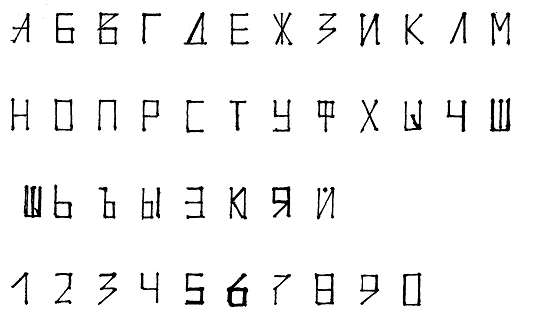 А Б В Г Д Е Ж З И К Л М
Н О П Р С Т У Ф Х Ц Ч Ш
Щ Ь Ъ Ы Э Ю Я Й
1 2 3 4 5 6 7 8 9 0